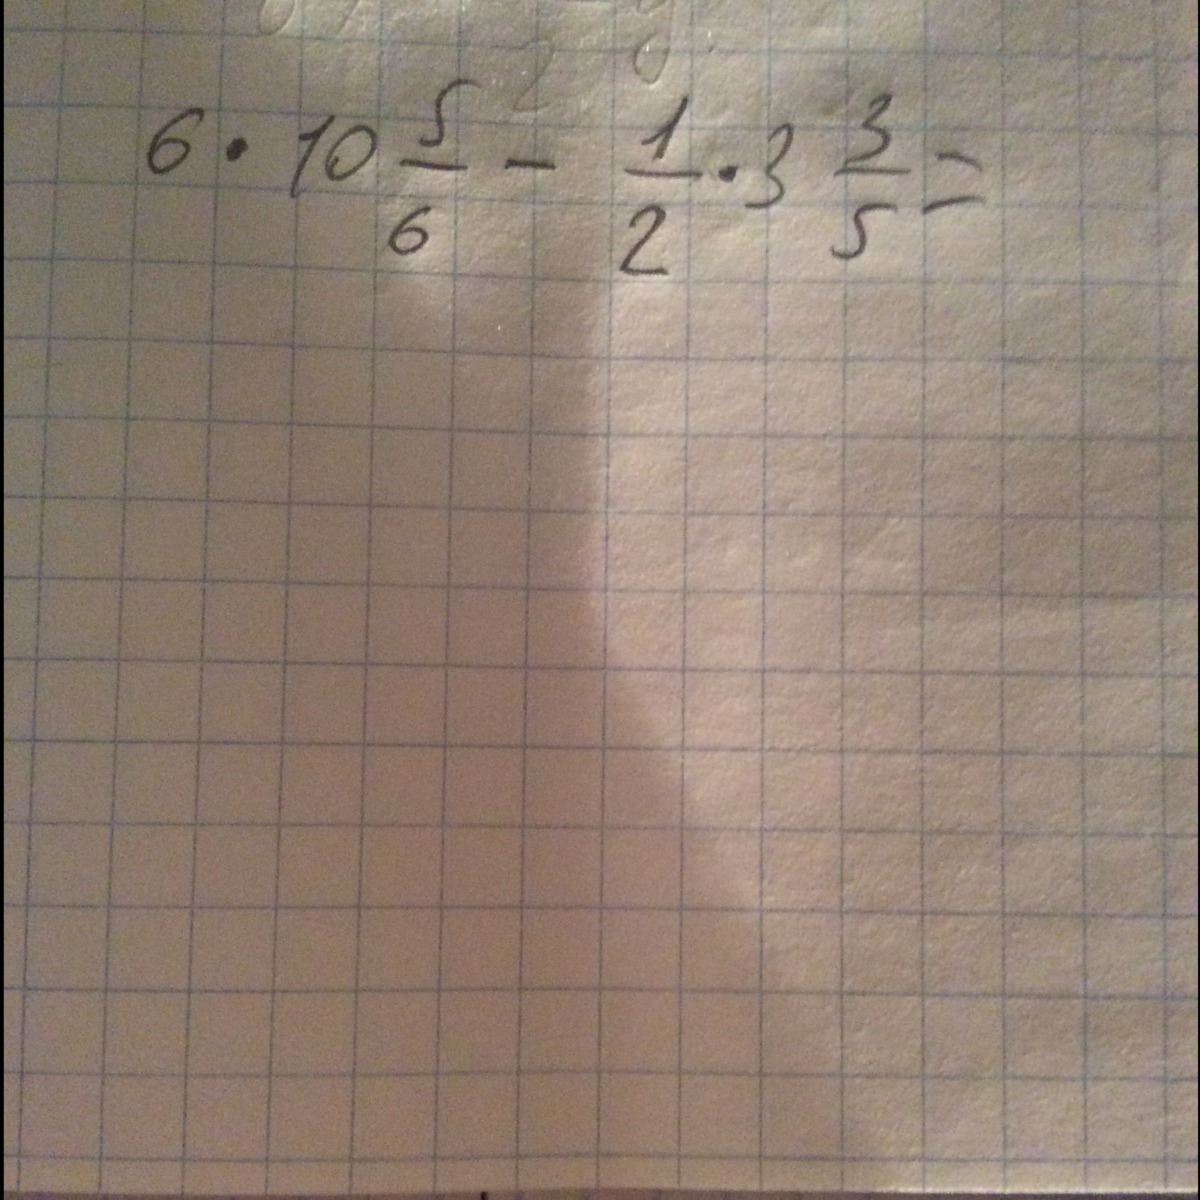 6 · 10 5/6 - 1/2 · 3 3/5 =